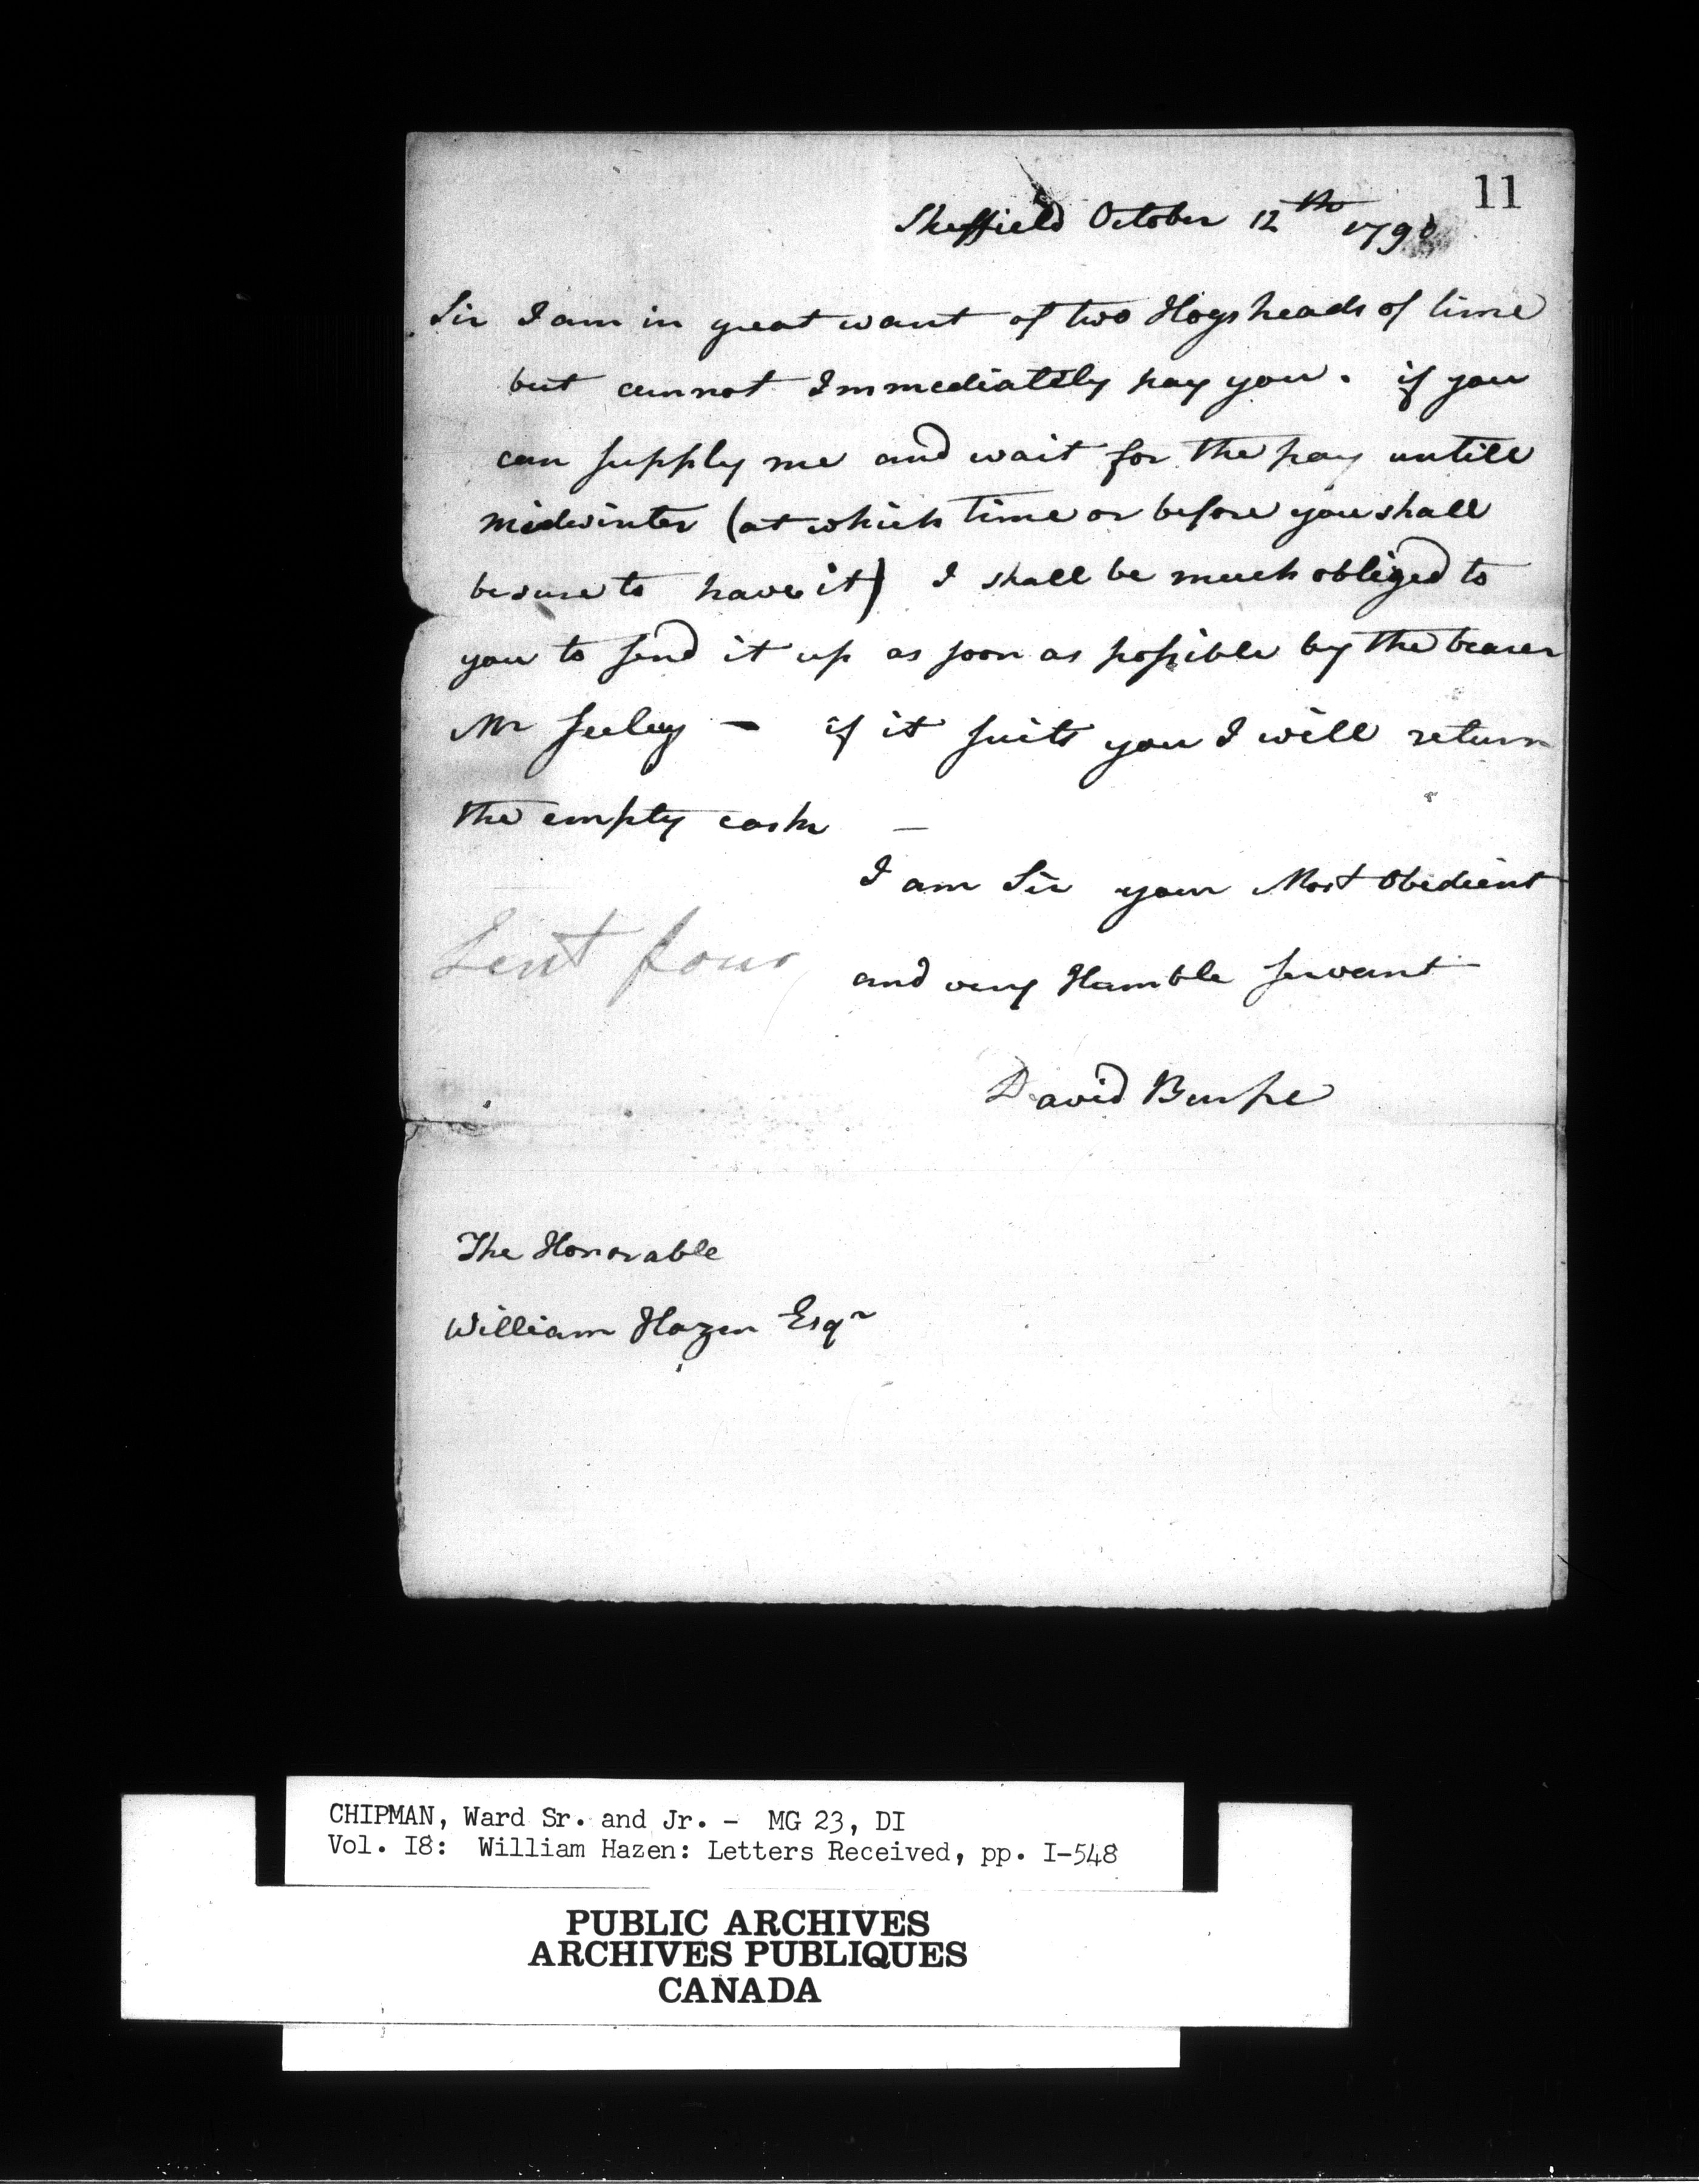 11
Sheffield October 12th 1790
Sir I am in great want of two Hogsheads of lime
but cannot Immediately pay you. if you
can supply me and wait for the pay untill
midwinter (at which time or before you shall
be sure to have it) I shall be much obliged to
you to send it up as soon as possible by the bearer
Mr Seeley – if it suits you I will return
the empty cask –
I am Sir your Most Obedient
Sent four
and very Humble servant
David Burpe
The Honorable
William Hazen Esqr
CHIPMAN, Ward Sr. and Jr. - MG 23, DI
Vol. I8: William Hazen: Letters Received, pp. I-548
PUBLIC ARCHIVES
ARCHIVES PUBLIQUES
CANADA